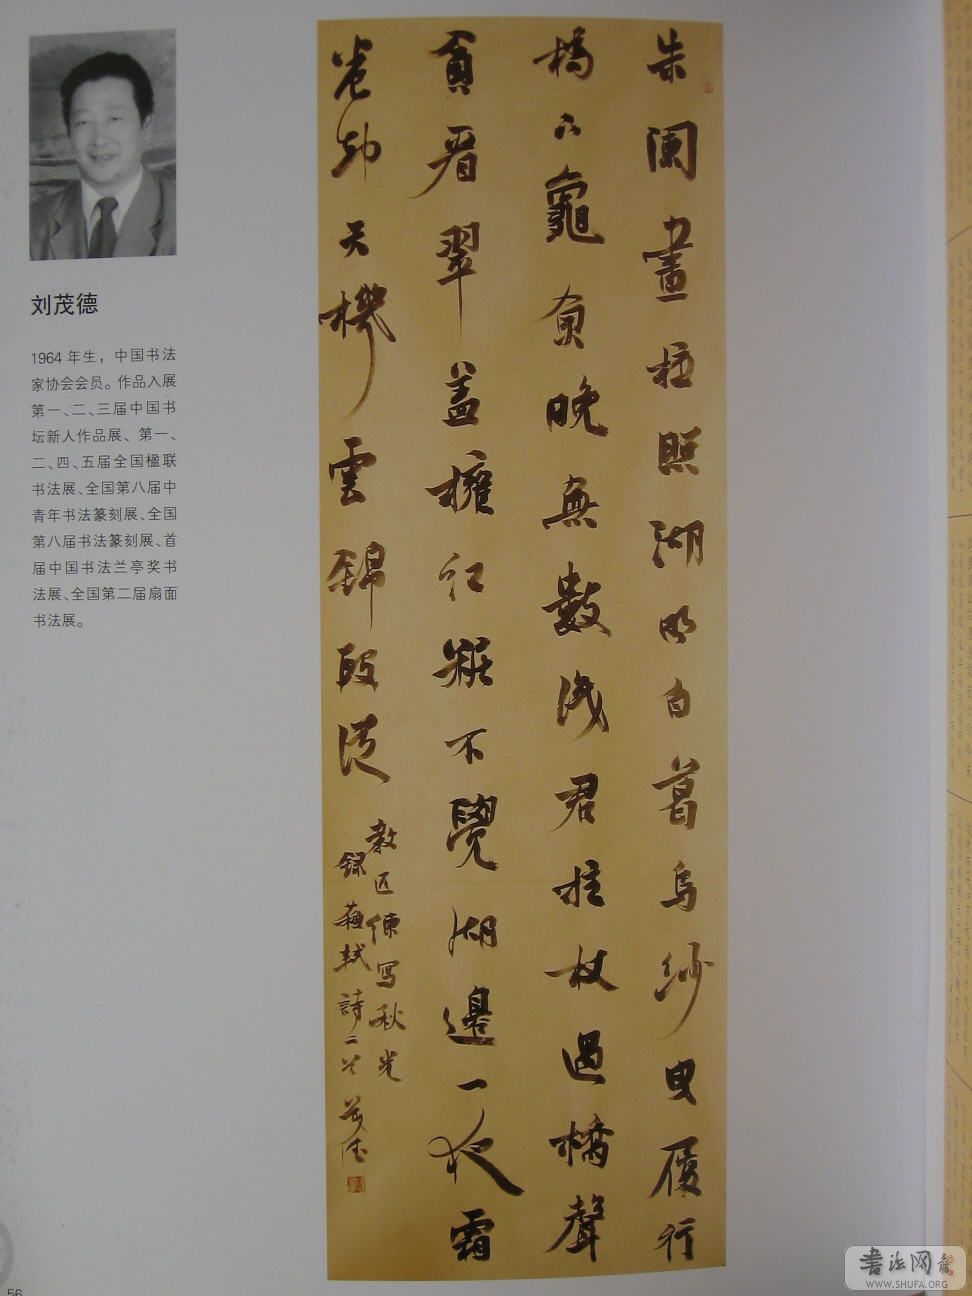 刘茂德
1964 年生，中国书法
家协会会员。作品入展
第一、二、三届中国书
坛新人作品展、第一、
二、四、五届全国楹联
书法展、全国第八届中
青年书法篆刻展、全国
第八届书法篆刻展、首
届中国书法兰亭奖书
法展、全国第二届扇面
书法展。
朱阑畫柱照湖明白葛烏紗曳履行
橋下龜魚晚無數識君拄杖過橋聲
貪看翠盖擁紅粧不覺湖邊一夜霜
卷却天機雲錦段從
教匹練寫秋光
録蘇軾詩二首 茂德
56
書法网
WWW.SHUFA.ORG